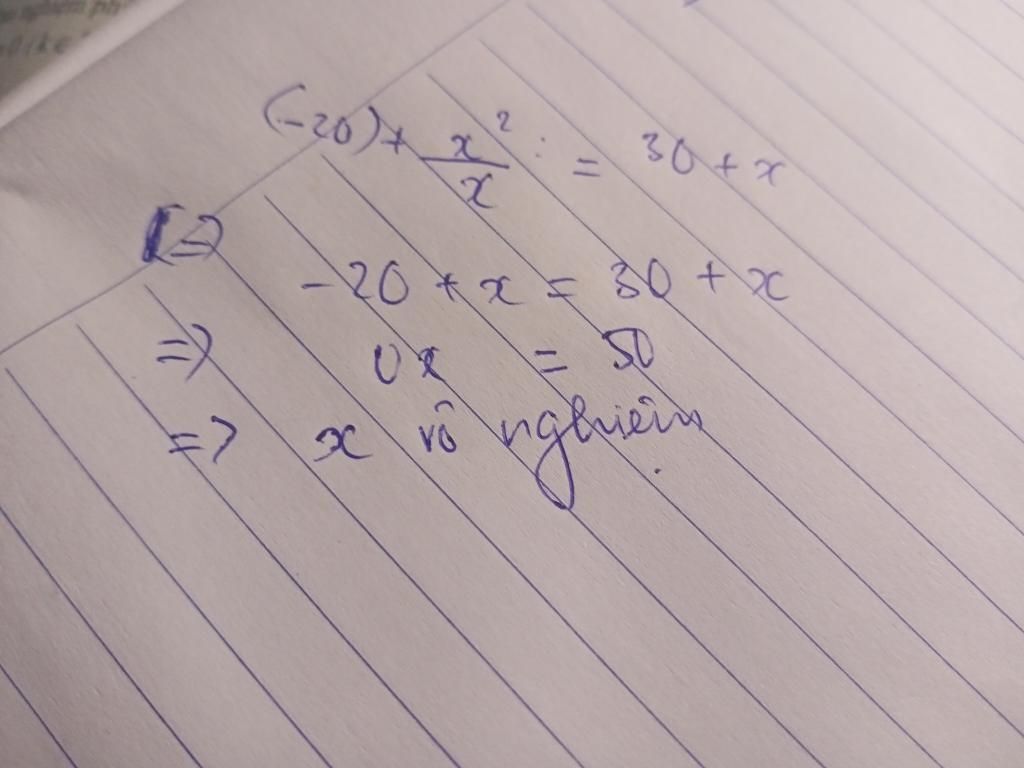 (-20) + x²/x : = 30 + x
(=) -20 + x = 30 + x
=> 0x = 50
=> x vô nghiệm.